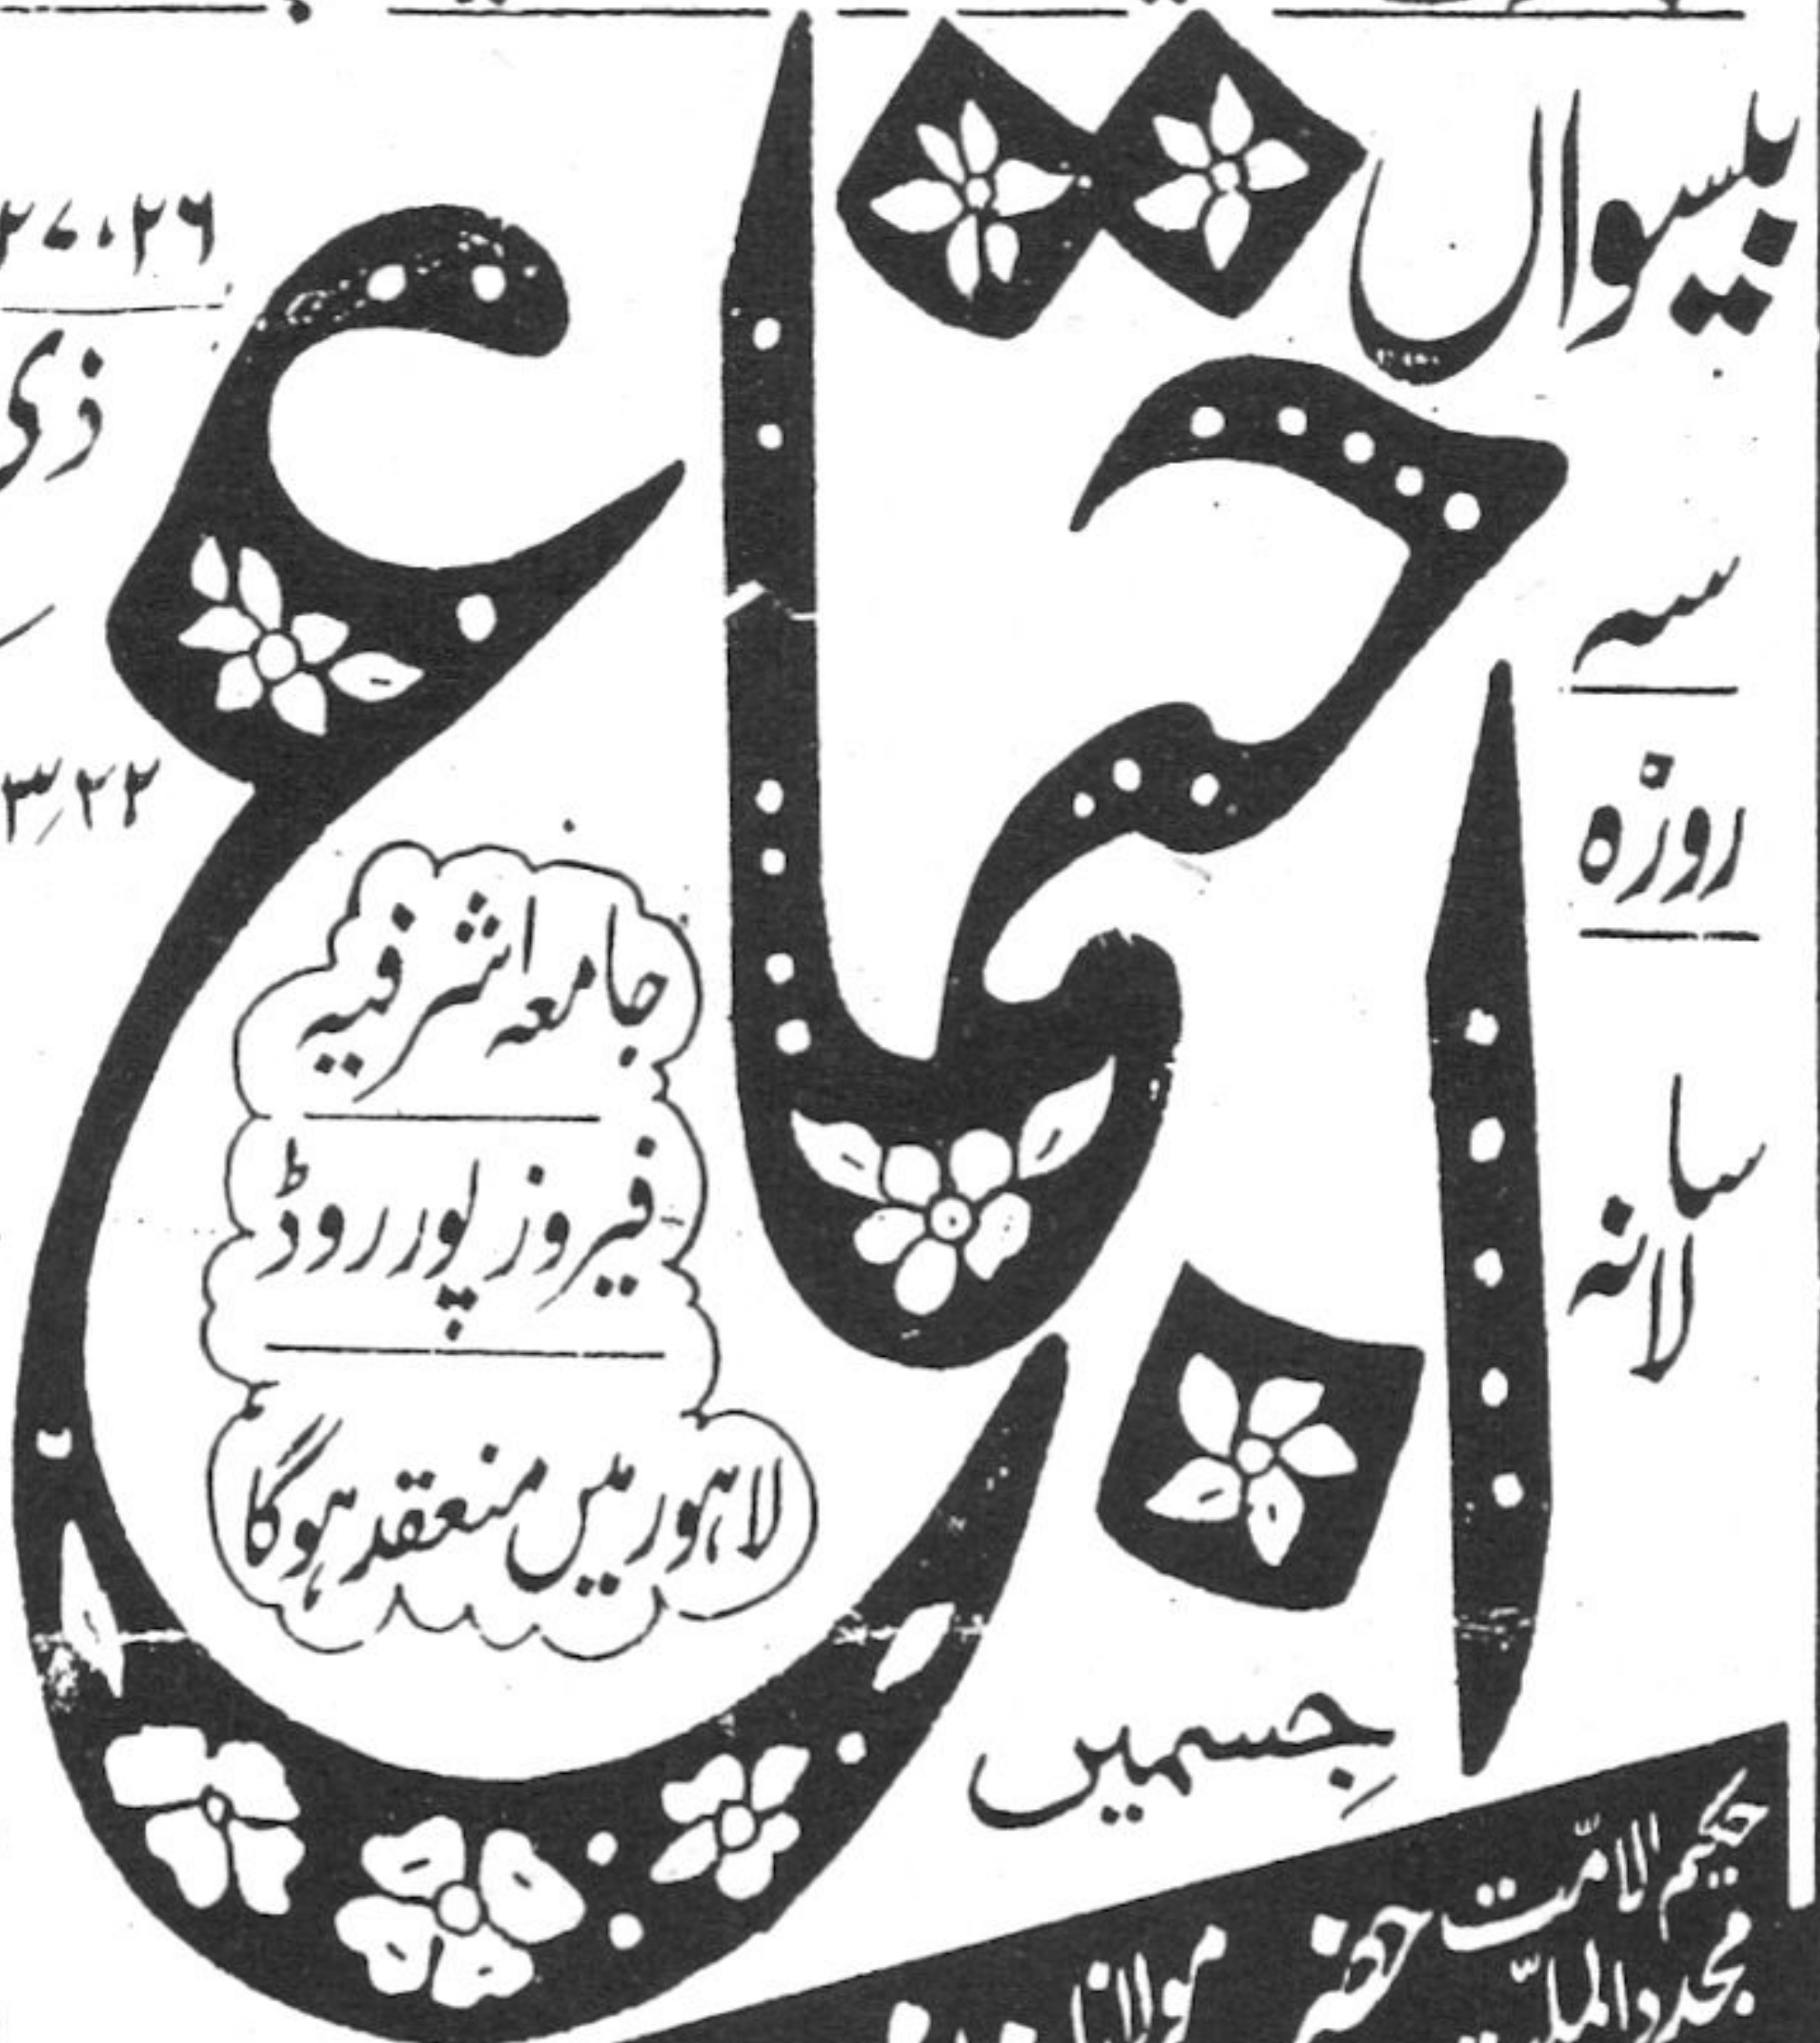 بیسواں
سہ
روزہ
سالانہ
اجتماع
۲۶،۲۷
ذی
جامعہ اشرفیہ
فیروز پور روڈ
لاہور میں منعقد ہوگا
جسمیں
حکیم الامّت
مجدد الملّت
حضرت مولانا